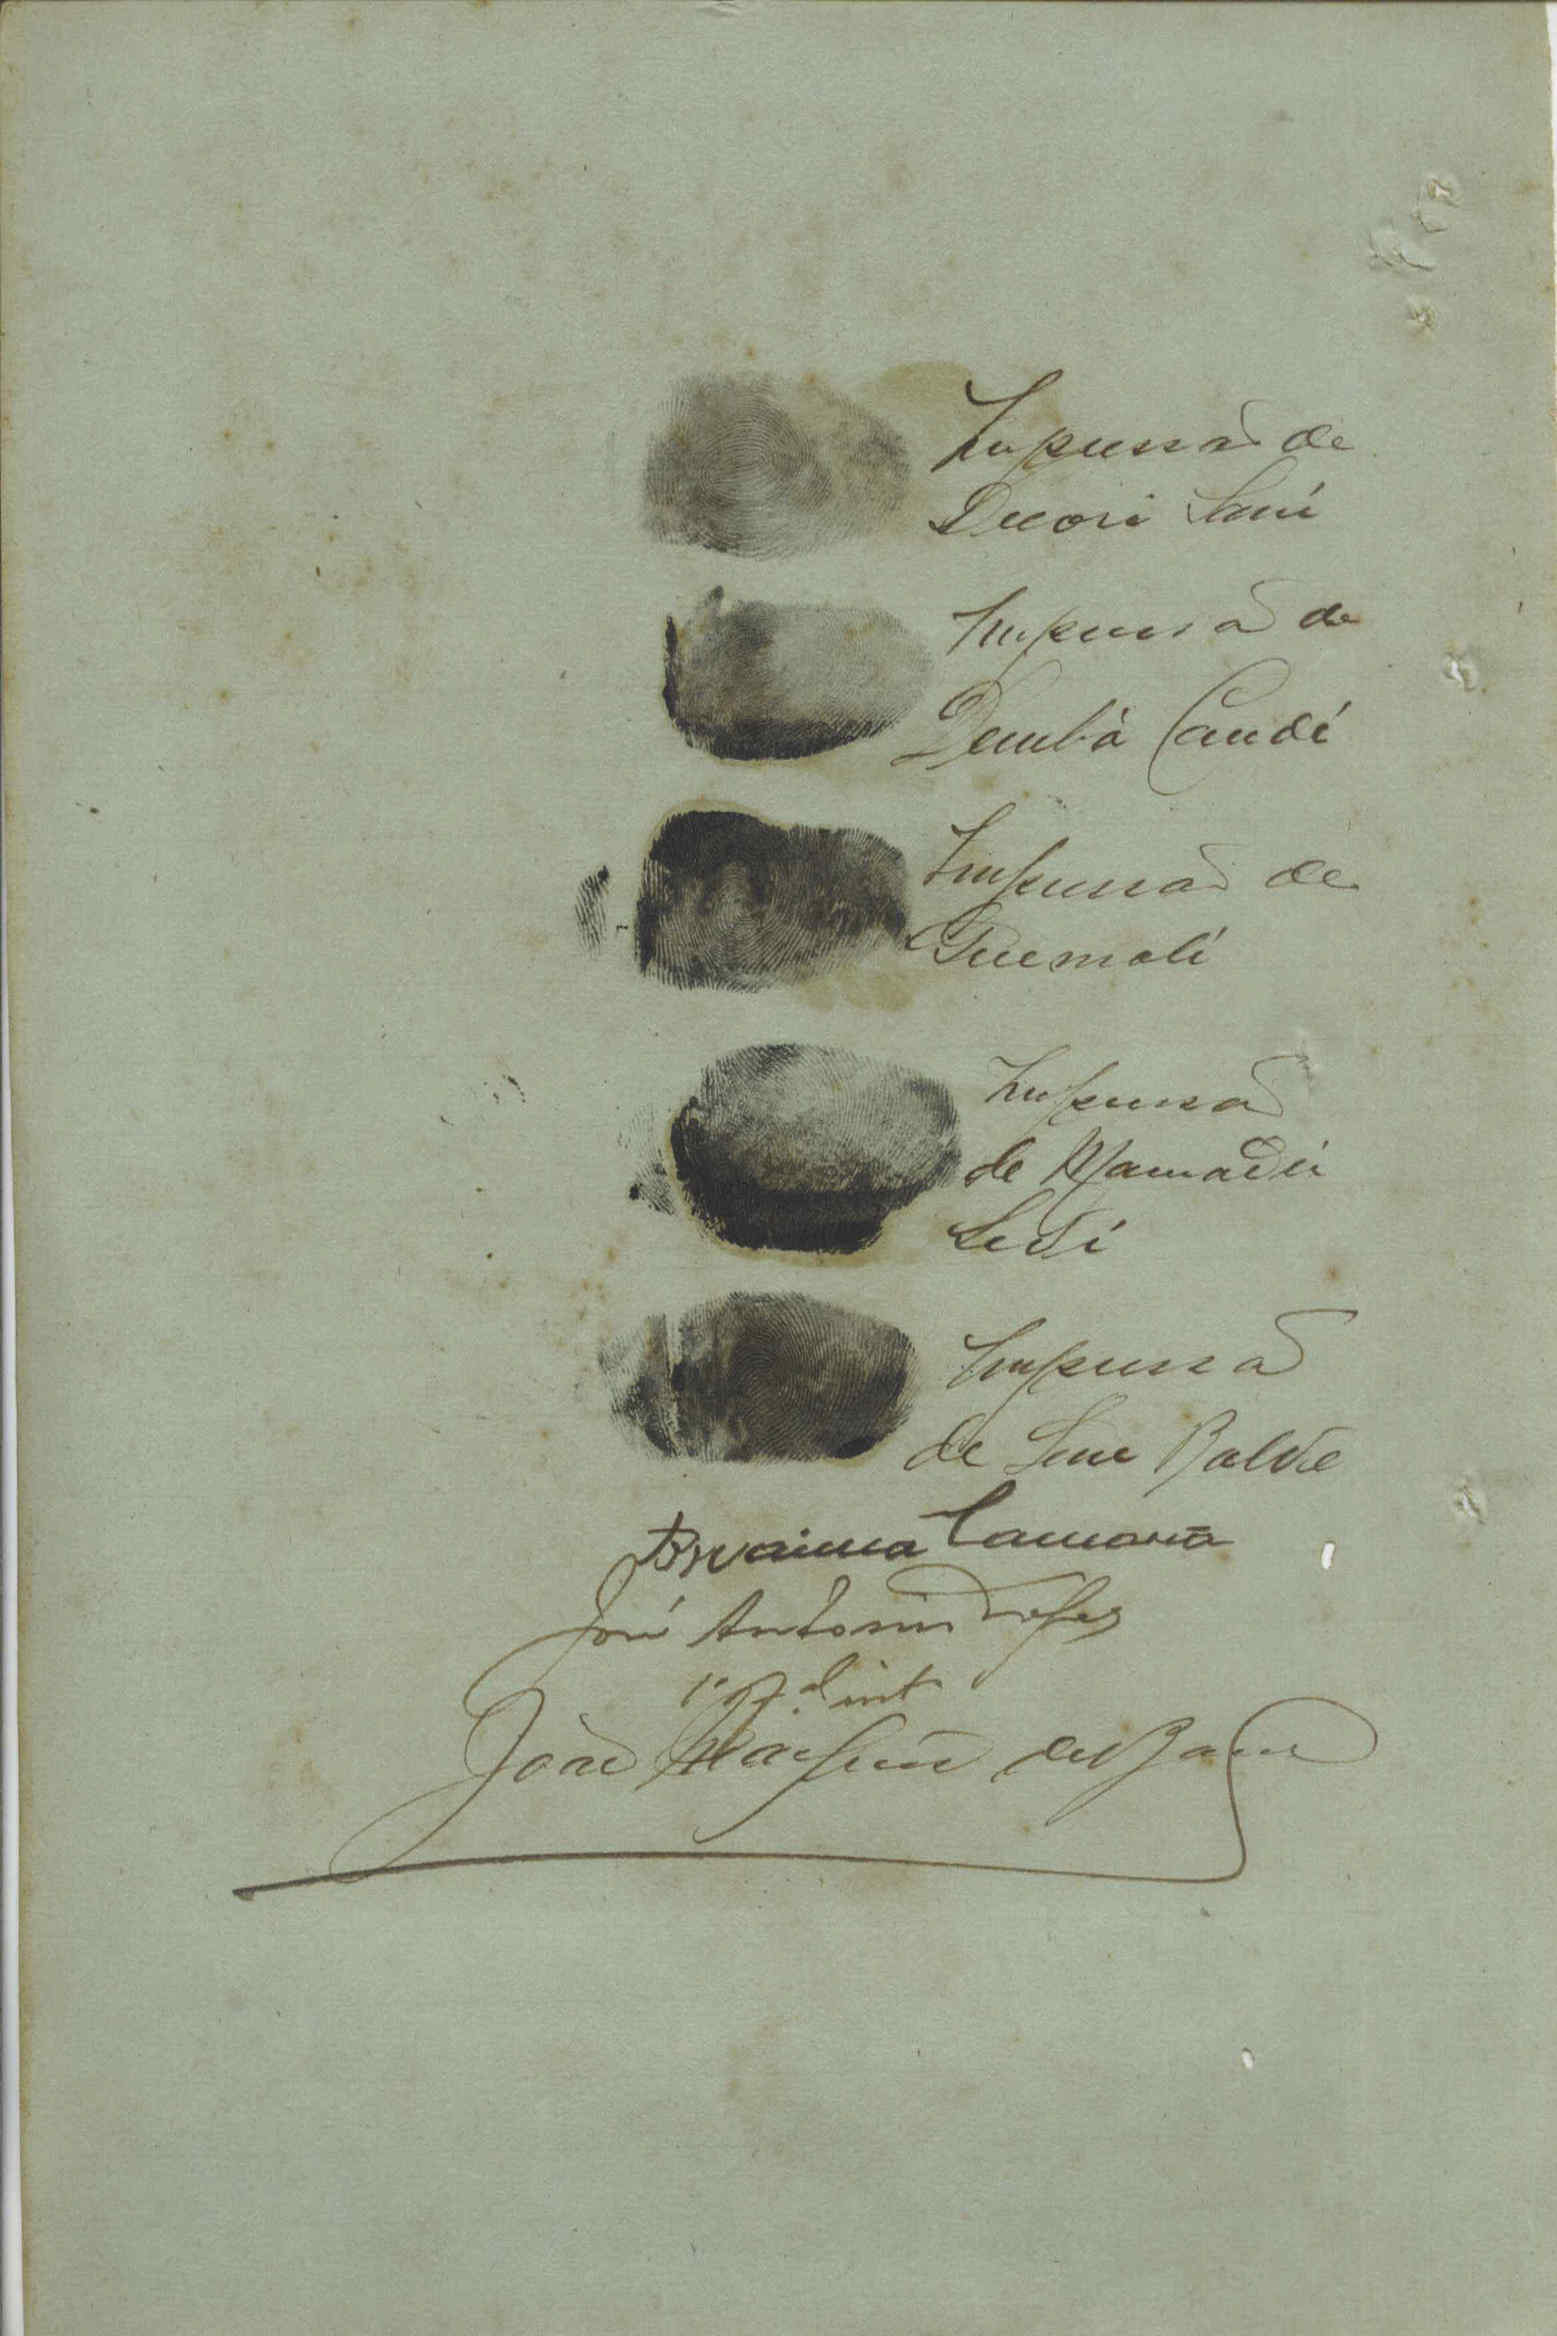 Impressão de
Decori Sani
Impressão de
Dembá Candí
Impressão de
Quemalí
Impressão
de Mamadú
Sedí
Impressão
de Sene Balde
Braima Camará
José Antonio Lopes
int
João